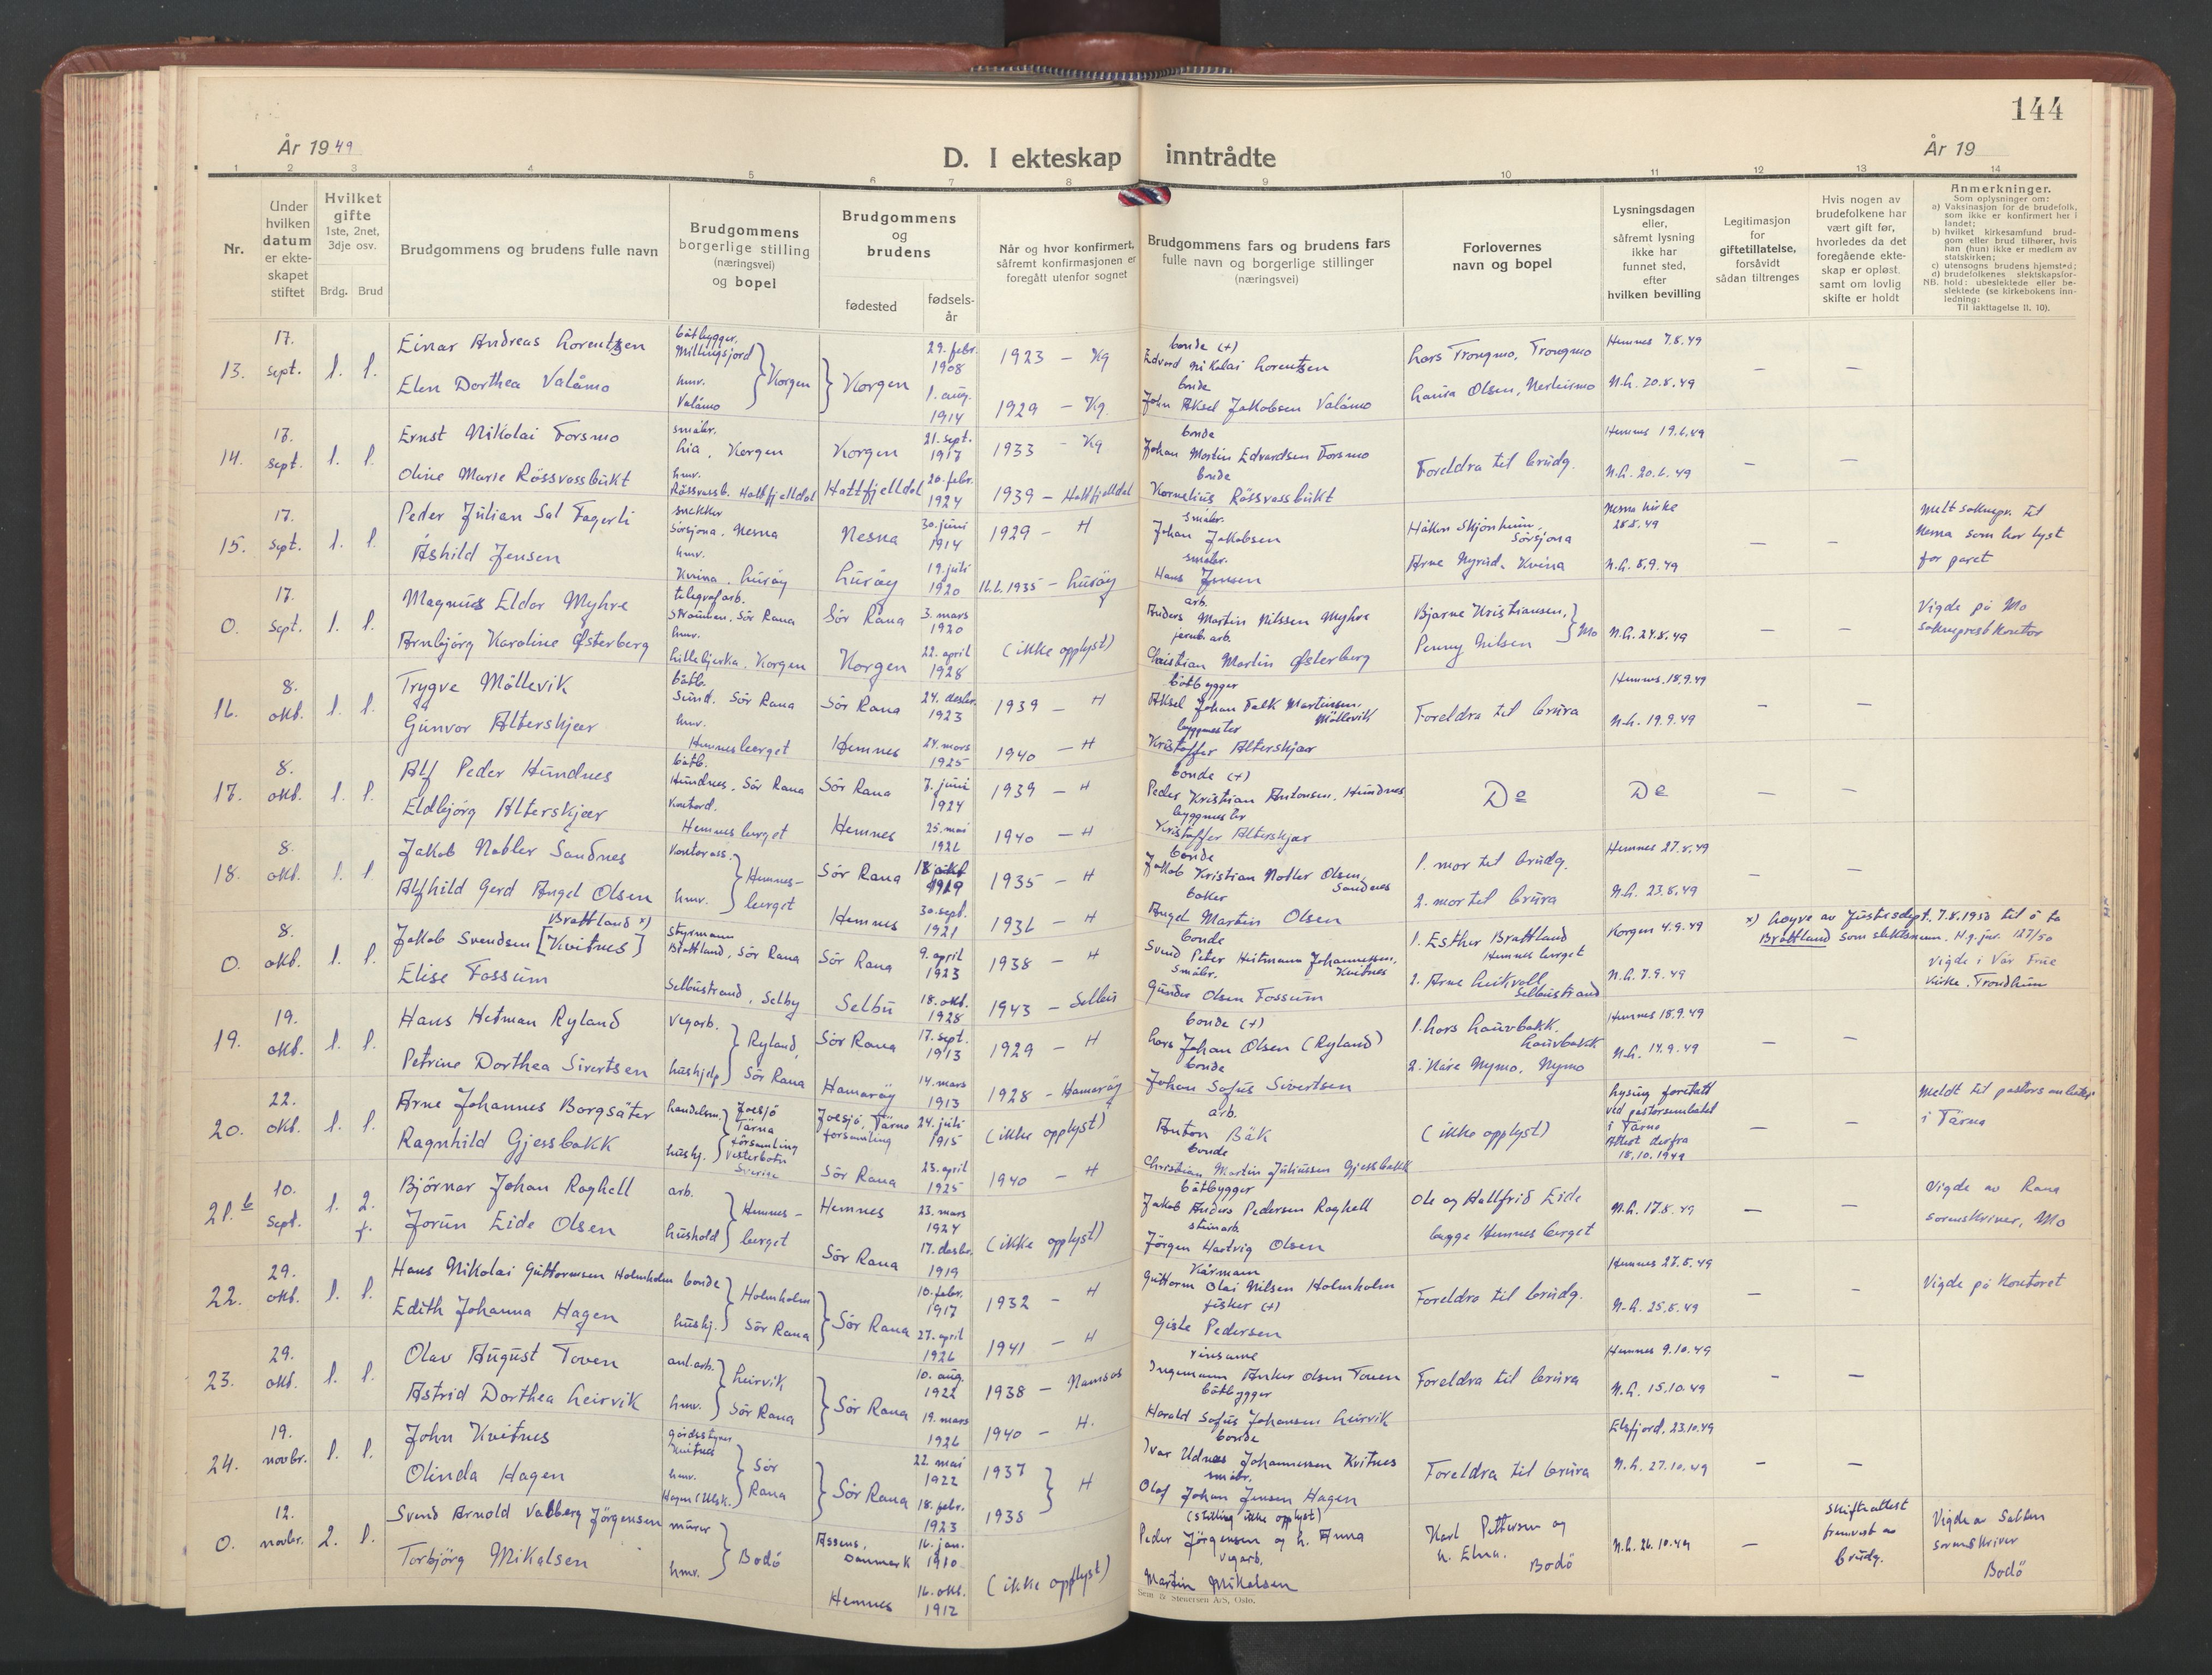 144
År 1949
D. I ekteskap inntrådte
År 19
1 2 3 4 5 6 7 8 9 10 11 12 13 14
Nr.
Under hvilken datum er ekteskapet stiftet
Hvilket gifte 1ste, 2net, 3dje osv.
Brdg. Brud
Brudgommens og brudens fulle navn
Brudgommens borgerlige stilling (næringsvei) og bopel
Brudgommens og brudens
fødested
fødselsår
Når og hvor konfirmert, såfremt konfirmasjonen er foregått utenfor sognet
Brudgommens fars og brudens fars fulle navn og borgerlige stillinger (næringsvei)
Forlovernes navn og bopel
Lysningsdagen eller, såfremt lysning ikke har funnet sted, efter hvilken bevilling
Legitimasjon for giftetillatelse, forsåvidt sådan tiltrenges
Hvis nogen av brudefolkene har vært gift før, hvorledes da det foregående ekteskap er opløst, samt om lovlig skifte er holdt
Anmerkninger.
Som oplysninger om:
a) Vaksinasjon for de brudefolk, som ikke er konfirmert her i landet;
b) hvilket kirkesamfund brudgom eller brud tilhører, hvis han (hun) ikke er medlem av statskirken;
c) utensogns brudens hjemsted;
d) brudefolkenes slektskapsforhold: ubeslektede eller beslektede (se kirkebokens innledning:
NB. Til iakttagelse II. 10).
13. 17. sept. 1. 1.
Einar Andreas Lorentzen båtbygger, Millingsjord Korgen Korgen 29. febr. 1908 1923 - Kg bonde (+) Edvard Nikolai Lorentzen Lars Trongmo, Trongmo Hemnes 7.8.49
Elen Dorthea Valåmo hmv. Valåmo 1. aug. 1914 1929 - Kg. bonde John Aksel Jakobsen Valåmo Laura Olsen, Nerleirmo N.L. 20.8.49 - -
14. 17. sept. 1. 1.
Ernst Nikolai Forsmo småbr. Lia, Korgen Korgen 21. sept. 1917 1933 - Kg bonde Johan Martin Edvardsen Forsmo Foreldra til brudg. Hemnes 19.6.49
Oline Marie Rössvassbukt hmv. Rössvassb. Hattfjelldal Hattfjelldal 20. febr. 1924 1939 - Hattfjelldal bonde Kornelius Rössvassbukt N.L. 20.6.49 - -
15. 17. sept. 1. 1.
Peder Julian Sal Fagerli snekker Sörsjona, Nesna Nesna 30. juni 1914 1929 - H småbr. Johan Jakobsen Håkon Skjönheim, Sörsjona Nesna kirke 28.8.49 Melt soknepr. til Nesna som har lyst for paret
Åshild Jensen hmv. Kvina, Luröy Luröy 19. juli 1920 16.6.1935 - Luröy småbr. Hans Jensen Arne Nyrud, Kvina N.L. 8.9.49 - -
0. 17. sept. 1. 1.
Magnus Eldor Myhre telegrafarb. Straumen, Sör Rana Sör Rana 3. mars 1920 (ikke opplyst) arb. Anders Martin Nilssen Myhre Bjarne Kristiansen, Penny Nilsen Mo N.L. 24.8.49 - - Vigde på Mo sokneprestkontor
Arnbjörg Karoline Østerberg hmv. Lillebjerka, Korgen Korgen 22. april 1928 jernb.arb. Christian Martin Østerberg
16. 8. okt. 1. 1.
Trygve Möllevik båtb. Sund, Sör Rana Sör Rana 24. desbr. 1923 1939 - H båtbygger Aksel Johan Falk Martinsen, Möllevik Foreldra til brura Hemnes 18.9.49
Gunvor Alterskjær hmv. Hemnesberget Hemnes 24. mars 1925 1940 - H byggmester Kristoffer Alterskjær N.L. 19.9.49 - -
17. 8. okt. 1. 1.
Alf Peder Hundnes båtb. Hundnes, Sör Rana Sör Rana 7. juni 1924 1939 - H bonde (+) Peder Kristian Antonsen, Hundnes Do Do - -
Eldbjörg Alterskjær kontord. Hemnesberget Hemnes 25. mai 1926 1940 - H byggmester Kristoffer Alterskjær
18. 8. okt. 1. 1.
Jakob Nobler Sandnes kontorass. Hemnesberget Sör Rana 1919 1935 - H bonde Jakob Kristian Nobler Olsen, Sandnes 1. mor til brudg. Hemnes 27.8.49
Alfhild Gerd Angel Olsen hmv. Hemnes 30. sept. 1921 1936 - H baker Angel Martin Olsen 2. mor til brura N.L. 23.8.49 - -
0. 8. okt. 1. 1.
Jakob Svendsen Brattland x) [Kvitnes] styrmann Brattland, Sör Rana Sör Rana 9. april 1923 1938 - H bonde Svend Peter Heitmann Johannessen, Kvitnes 1. Esther Brattland Hemnesberget Korgen 4.9.49 x) Løyve av Justisdept. 7.8.1950 til å ta Brattland som slektsnamn. H.g.jnr. 127/50
Elise Fossum Selbustrand, Selby Selbu 18. okt. 1928 1943 - Selbu småbr. Gunder Olsen Fossum 2. Arne Leikvoll Selbustrand N.L. 7.9.49 Vigde i Vår Frue kirke, Trondheim
19. 19. okt. 1. 1.
Hans Hetman Ryland vegarb. Ryland, Sör Rana Sör Rana 17. sept. 1913 1929 - H bonde (+) Lars Johan Olsen (Ryland) 1. Lars Laurbakk, Laurbakk Hemnes 18.9.49
Petrine Dorthea Sivertsen hushjelp Hamaröy 14. mars 1913 1928 - Hamaröy bonde Johan Sofus Sivertsen 2. Kåre Nymo, Nymo N.L. 14.9.49 - -
20. 22. okt. 1. 1.
Arne Johannes Borgsäter handelsm. Joesjö Tärna församling Vesterbotn Sverige Joesjö, Tärna forsamling 24. juli 1915 (ikke opplyst) arb. Anton Bäk (ikke opplyst) Lysing foretatt ved pastorsembetet i Tärna Attest derfra 18.10.1949 - - Meldt til pastorsembetet i Tärna
Ragnhild Gjessbakk hushj. Sör Rana 23. april 1925 1940 - H bonde Christian Martin Juliussen Gjessbakk
21.b 10. sept. 1. 2. f.
Björnar Johan Roghell arb. Hemnesberget Hemnes 23. mars 1924 (ikke opplyst) båtbygger Jakob Anders Pedersen Roghell Ole og Hallfrid Eide begge Hemnesberget N.L. 17.8.49 - - Vigde av Rana sorenskriver, Mo
Jorun Eide Olsen hushold Sör Rana 17. desbr. 1919 steinarb. Jörgen Hartvig Olsen
22. 29. okt. 1. 1.
Hans Nikolai Guttormsen Holmholm bonde Holmholm Sör Rana Sör Rana 10. febr. 1917 1932 - H kårmann Guttorm Olai Nilsen Holmholm Foreldra til brudg. Hemnes 27.8.49 Vigde på kontoret
Edith Johanna Hagen hushj. 27. april 1926 1941 - H fisker (+) Giske Pedersen N.L. 25.8.49 - -
23. 29. okt. 1. 1.
Olav August Toven anl.arb. Leirvik Sör Rana Sör Rana 10. aug. 1922 1938 - Namsos Ingemann Anker Olsen Toven Foreldra til brura Hemnes 9.10.49
Astrid Dorthea Leirvik hmv. 19. mars 1926 1940 - H. båtbygger Harald Sofus Johansen Leirvik N.L. 15.10.49 - -
24. 19. novbr. 1. 1.
John Kvitnes gårdsstyrer Kvitnes Sör Rana Sör Rana 22. mai 1922 1937 H bonde Ivar Udnæs Johannessen Kvitnes Foreldra til brura Elsfjord, 23.10.49
Olinda Hagen hmv. Hagen (Utsk.) 18. febr. 1923 1938 småbr. Olaf Johan Jensen Hagen N.L. 27.10.49 - -
0. 12. novbr. 2. 1.
Svend Arnold Valberg Jörgensen murer Bodö Assens, Danmark 16. jan. 1910 (ikke opplyst) (stilling ikke opplyst) Peder Jörgensen og h. Anna Karl Pettersen og h. Elna. Bodö N.L. 26.10.49 - Skifteattest framvist av brudg. Vigde av Salten sorenskriver Bodö
Torbjörg Mikalsen hmv. Hemnes 16. okt. 1912 vegarb. Martin Mikalsen
Sem & Stenersen A/S, Oslo.